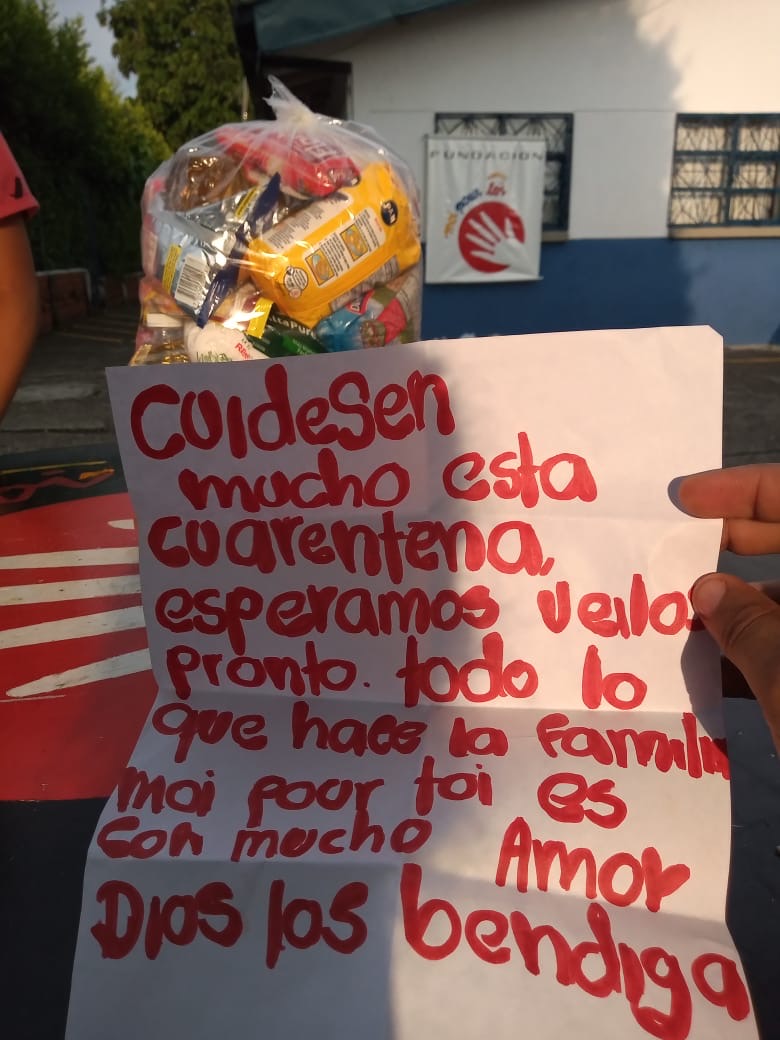 FUNDACION
moi pour toi
CUIdeSen
mucho esta
cuarentena,
esperamos verlos
pronto. todo lo
que hace la familia
moi pour toi es
con mucho Amor
Dios los bendiga